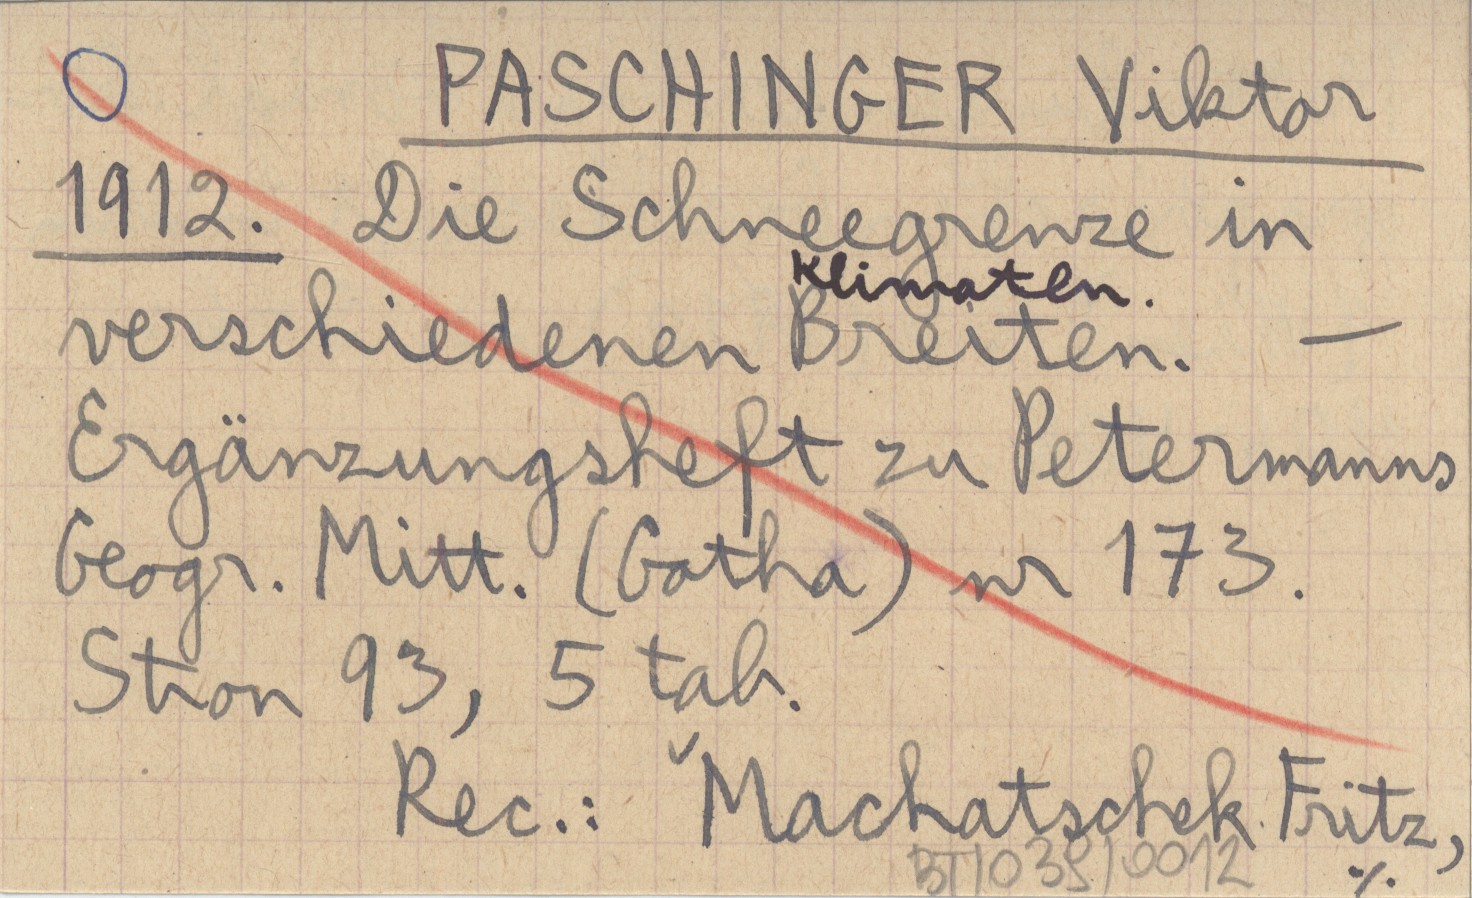 PASCHINGER Viktor
1912. Die Schneegrenze in
Klimaten.
verschiedenen Breiten. —
Ergänzungsheft zu Petermanns
Geogr. Mitt. (Gotha) nr 173.
Stron 93, 5 tab.
Rec.: Machatschek Fritz,
BT/039/0012 ./.